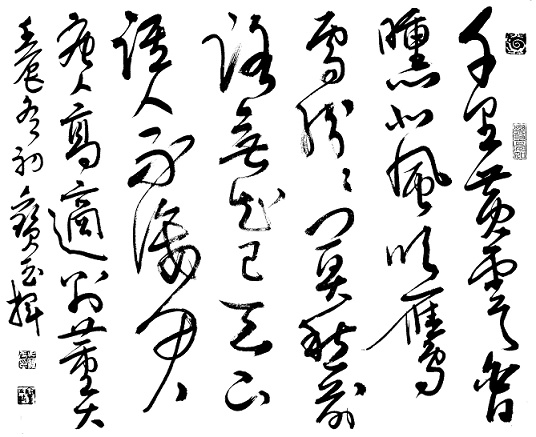 千里黄雲白日
曛北風吹雁
雪紛々莫愁前
路無知己天下
誰人不識君
唐人高適别董大
壬辰冬初寶玉揮